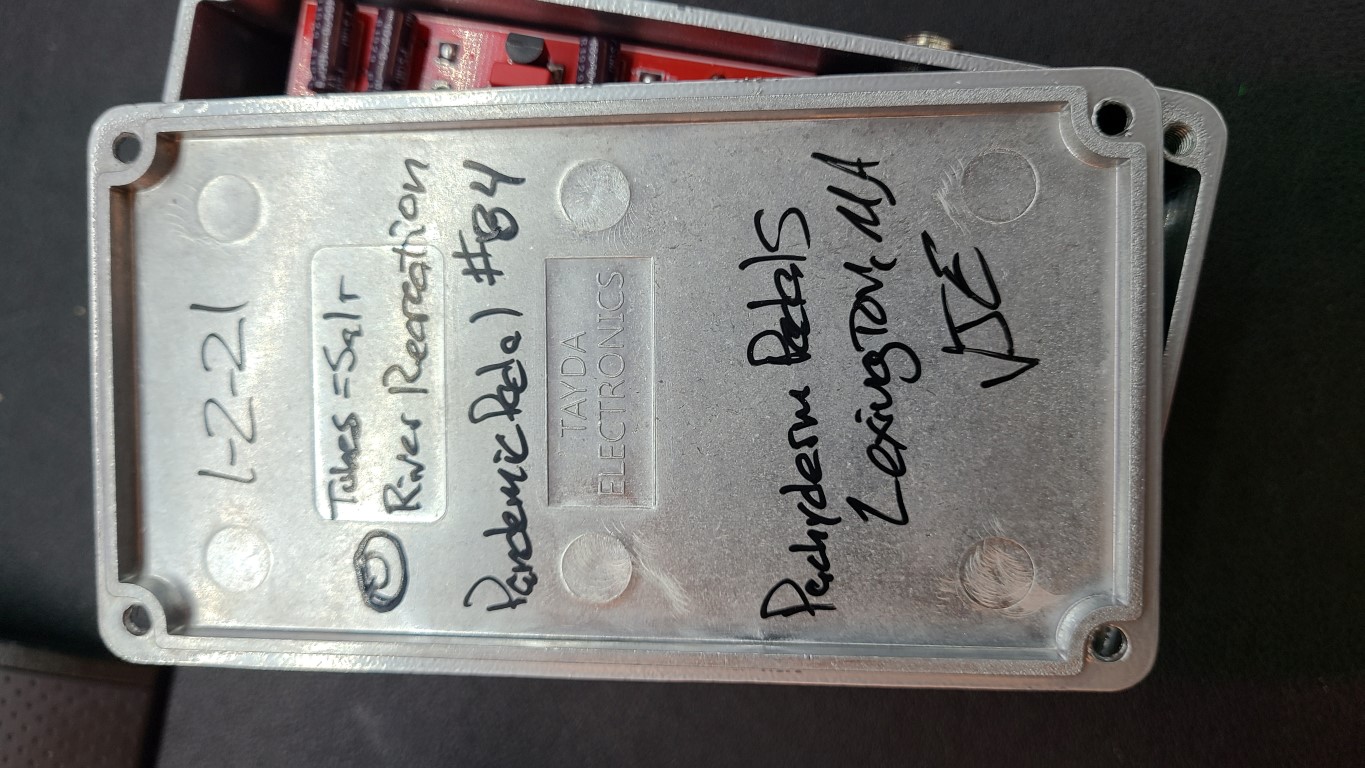 1-2-21
Tubes = Salt
River Recreation
Pandemic Pedal #84
TAYDA
ELECTRONICS
Pachyderm Pedals
Lexington, MA
VJE